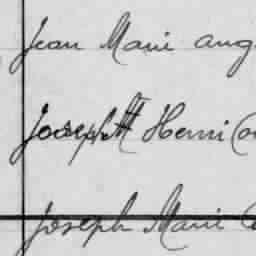 Jean Marie Aug
Joseph Henri
Joseph Marie